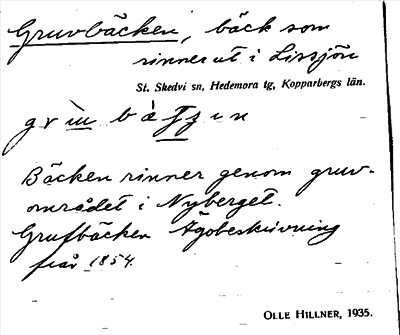 Gruvbäcken, bäck som
rinner ut i Lissjön
St. Skedvi sn, Hedemora tg, Kopparbergs län.
Bäcken rinner genom gruv-
området i Nyberget.
Grufbäcken Ägobeskrivning
från 1854.
OLLE HILLNER, 1935.